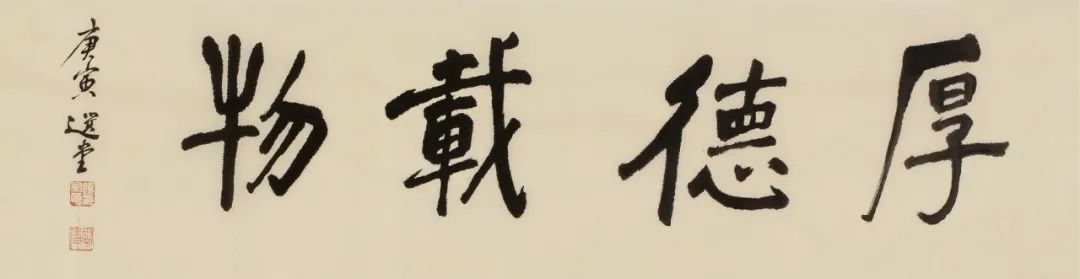 厚德載物
庚寅 選堂